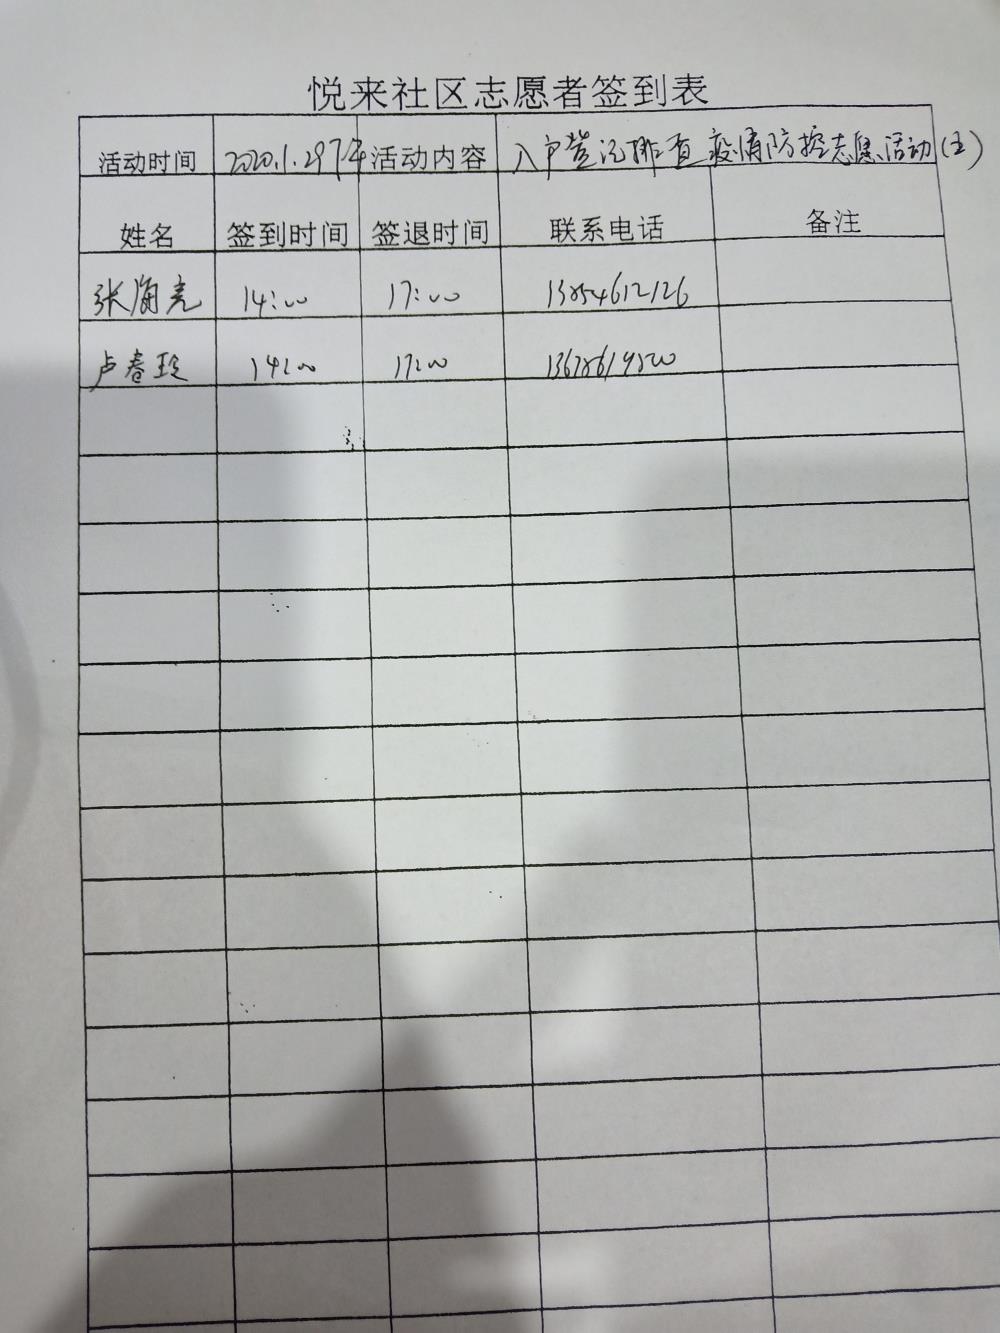 悦来社区志愿者签到表
活动时间 2020.1.29下午 活动内容 入户登记排查疫情防控志愿活动(五)
姓名 签到时间 签退时间 联系电话 备注
张海亮 14:00 17:00 13854612126
卢春玲 14:00 17:00